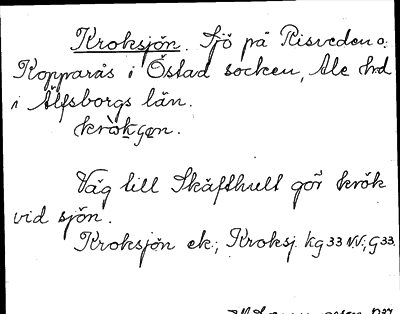 Kroksjön. Sjö på Risveden o.
Kopparås i Östad socken, Ale hd
i Älfsborgs län.
Väg till Skåfthult gör krök
vid sjön.
Kroksjön ek.; Kroksj. kg 33 NV; G 33.